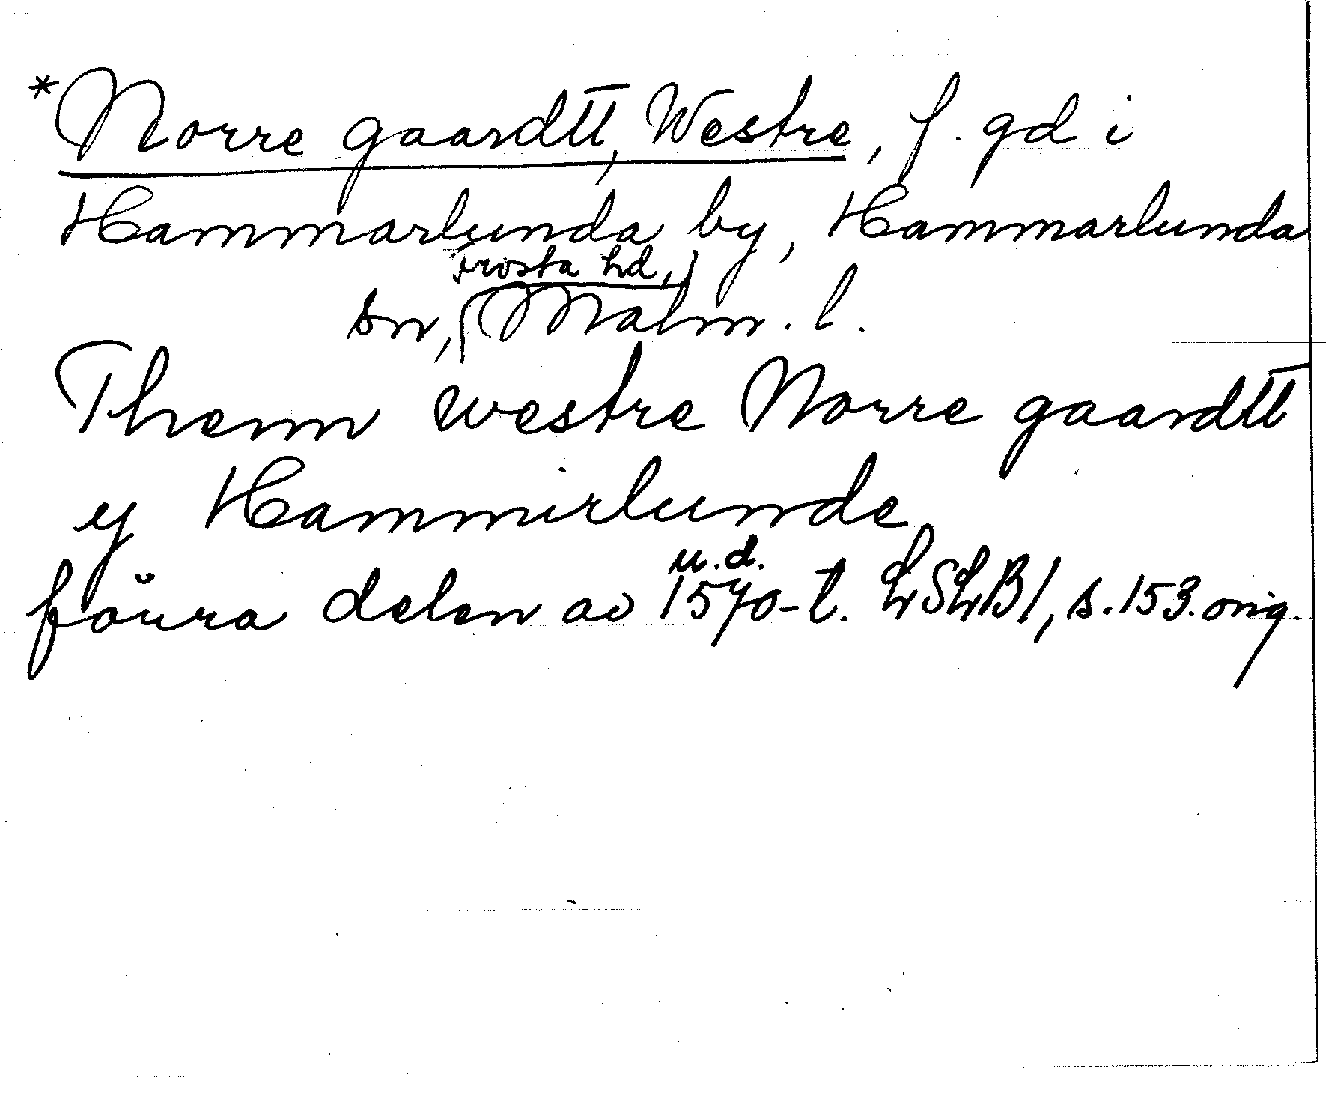 *Norre gaardtt, Westre, f. gd i
Hammarlunda by, Hammarlunda
Frosta hd,
sn, Malm. l.
Thenn westre Norre gaardtt
y Hammirlunde
u.d.
förra delen av 1570-t. LSLB I, s. 153. orig.